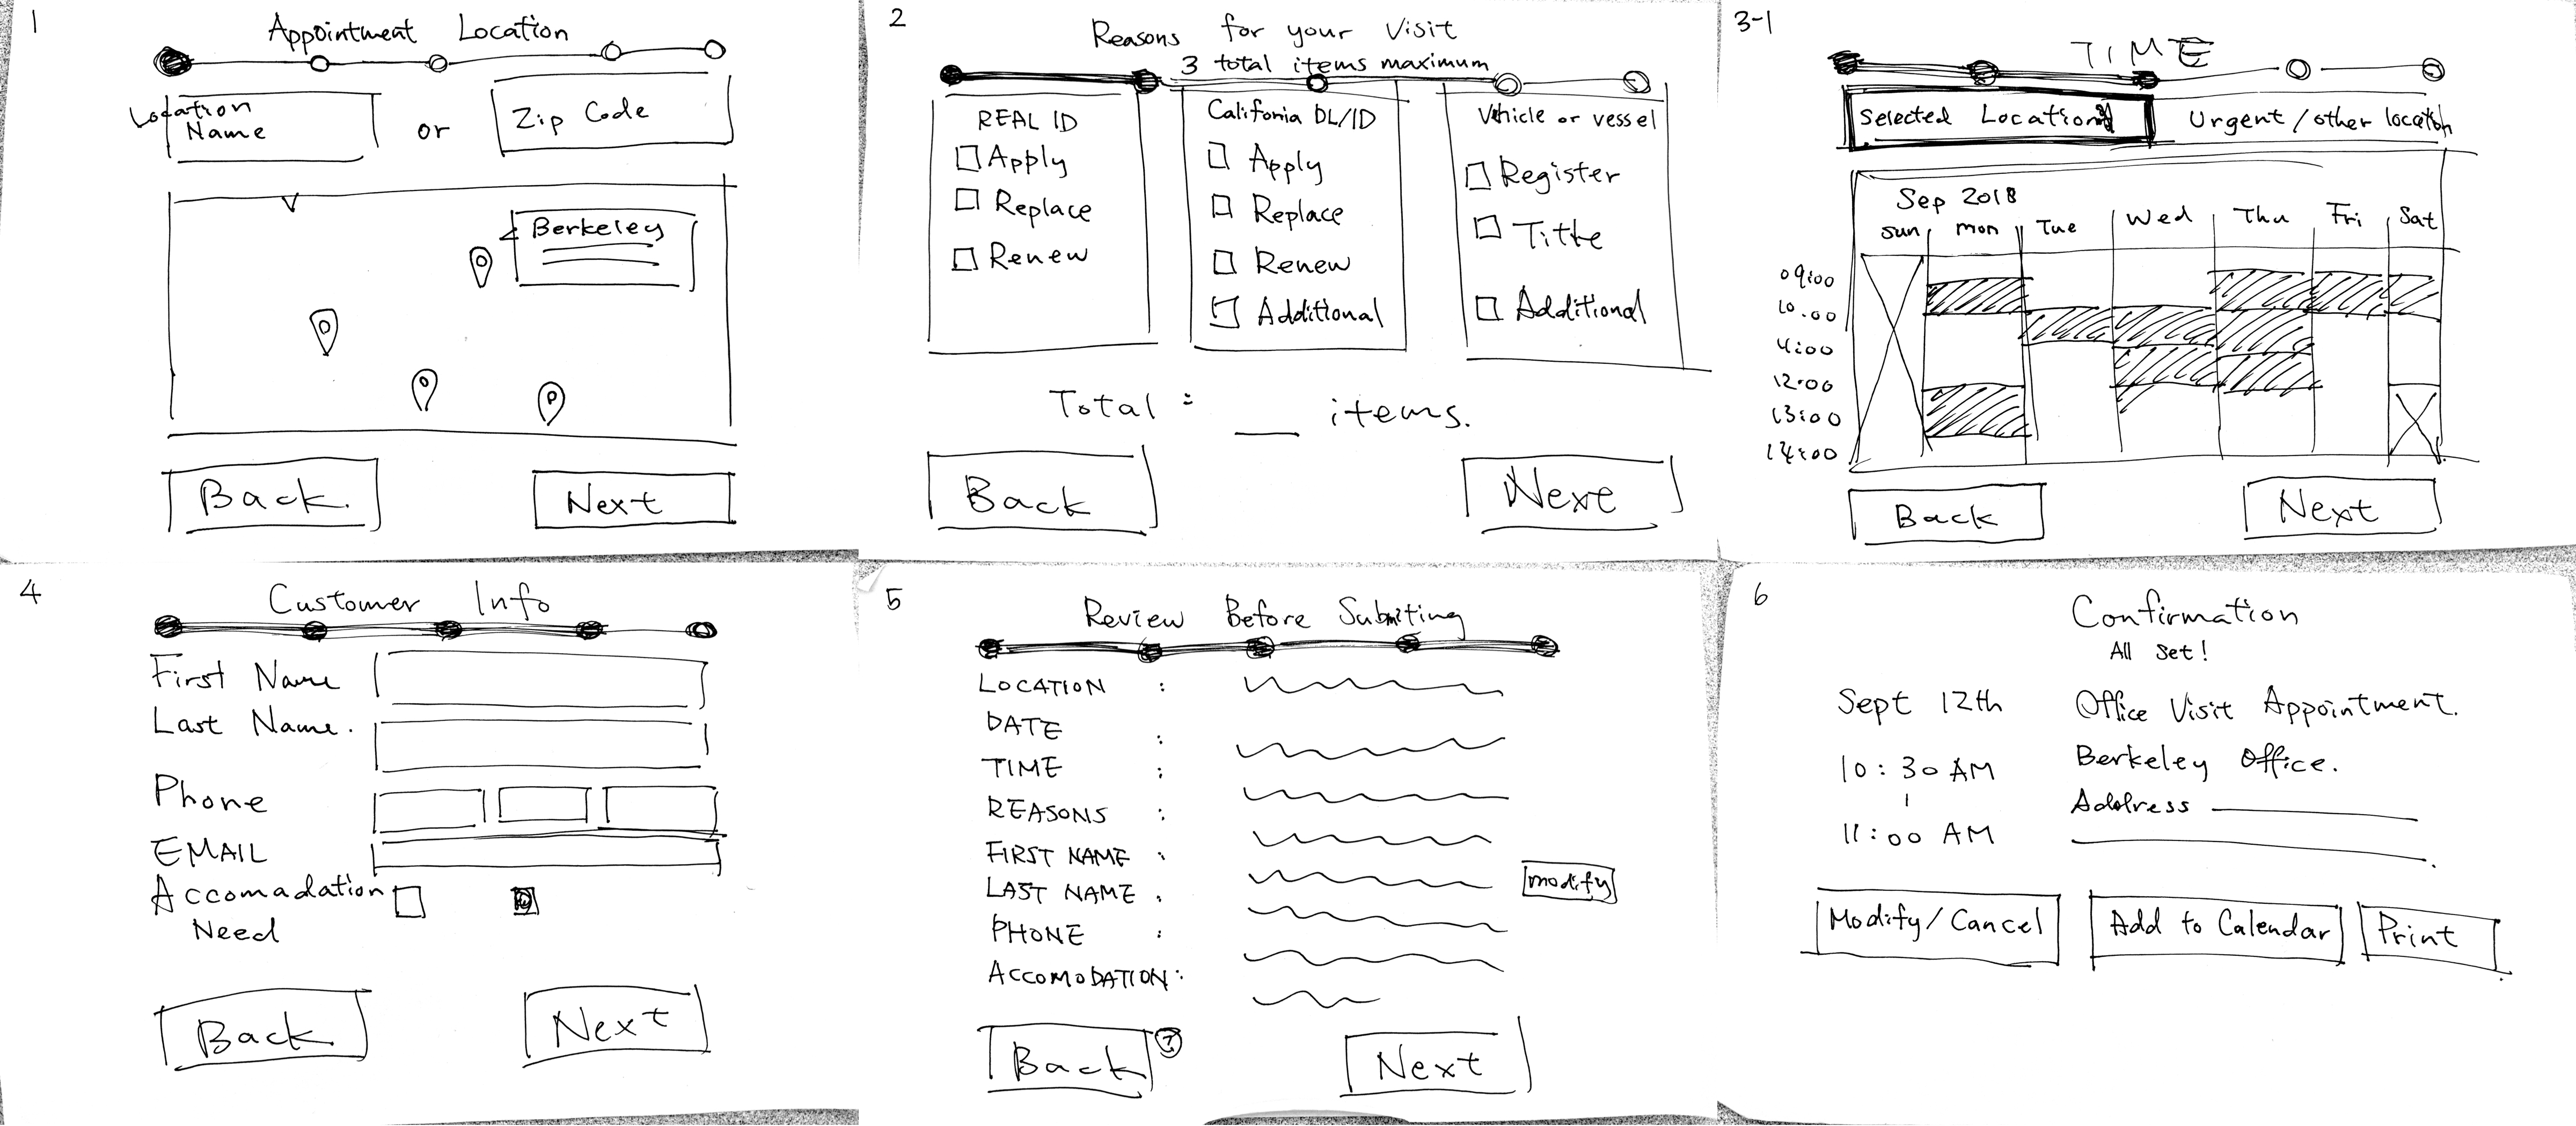 1
Appointment Location
Location Name
or
Zip Code
Berkeley
Back
Next
2
Reasons for your Visit
3 total items maximum
REAL ID
Apply
Replace
Renew
California DL/ID
Apply
Replace
Renew
Additional
Vehicle or vessel
Register
Title
Additional
Total = __ items.
Back
Next
3-1
TIME
Selected Location
Urgent / other location
Sep 2018
Sun mon Tue Wed Thu Fri Sat
09:00
10:00
4:00
12:00
13:00
14:00
Back
Next
4
Customer Info
First Name
Last Name.
Phone
EMAIL
Accomadation
Need
Back
Next
5
Review Before Submiting
LOCATION :
DATE :
TIME :
REASONS :
FIRST NAME :
LAST NAME :
modify
PHONE :
ACCOMODATION :
Back ?
Next
6
Confirmation
All set!
Sept 12th
10:30 AM
11:00 AM
Office Visit Appointment.
Berkeley Office.
Address
Modify/Cancel
Add to Calendar
Print